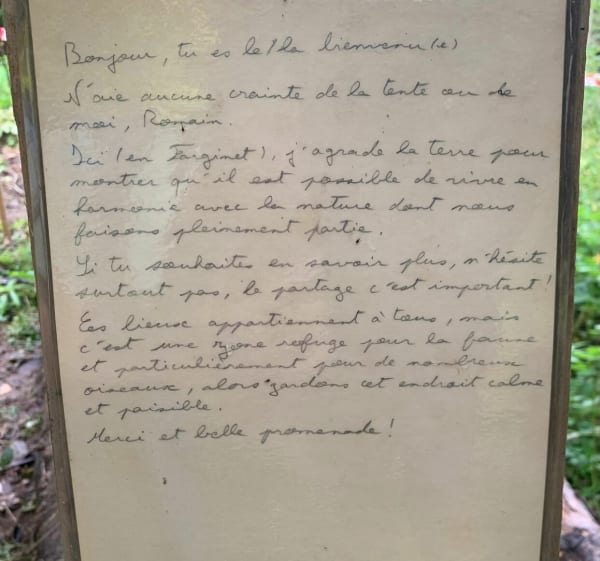 Bonjour, tu es le/la bienvenu(e)
N'aie aucune crainte de la tente ou de
moi, Romain.
Ici (en Farginet), j'agrade la terre pour
montrer qu'il est possible de vivre en
harmonie avec la nature dont nous
faisons pleinement partie.
Si tu souhaites en savoir plus, n'hésite
surtout pas, le partage c'est important!
Ces lieux appartiennent à tous, mais
c'est une zone refuge pour la faune
et particulièrement pour de nombreux
oiseaux, alors gardons cet endroit calme
et paisible.
Merci et belle promenade!